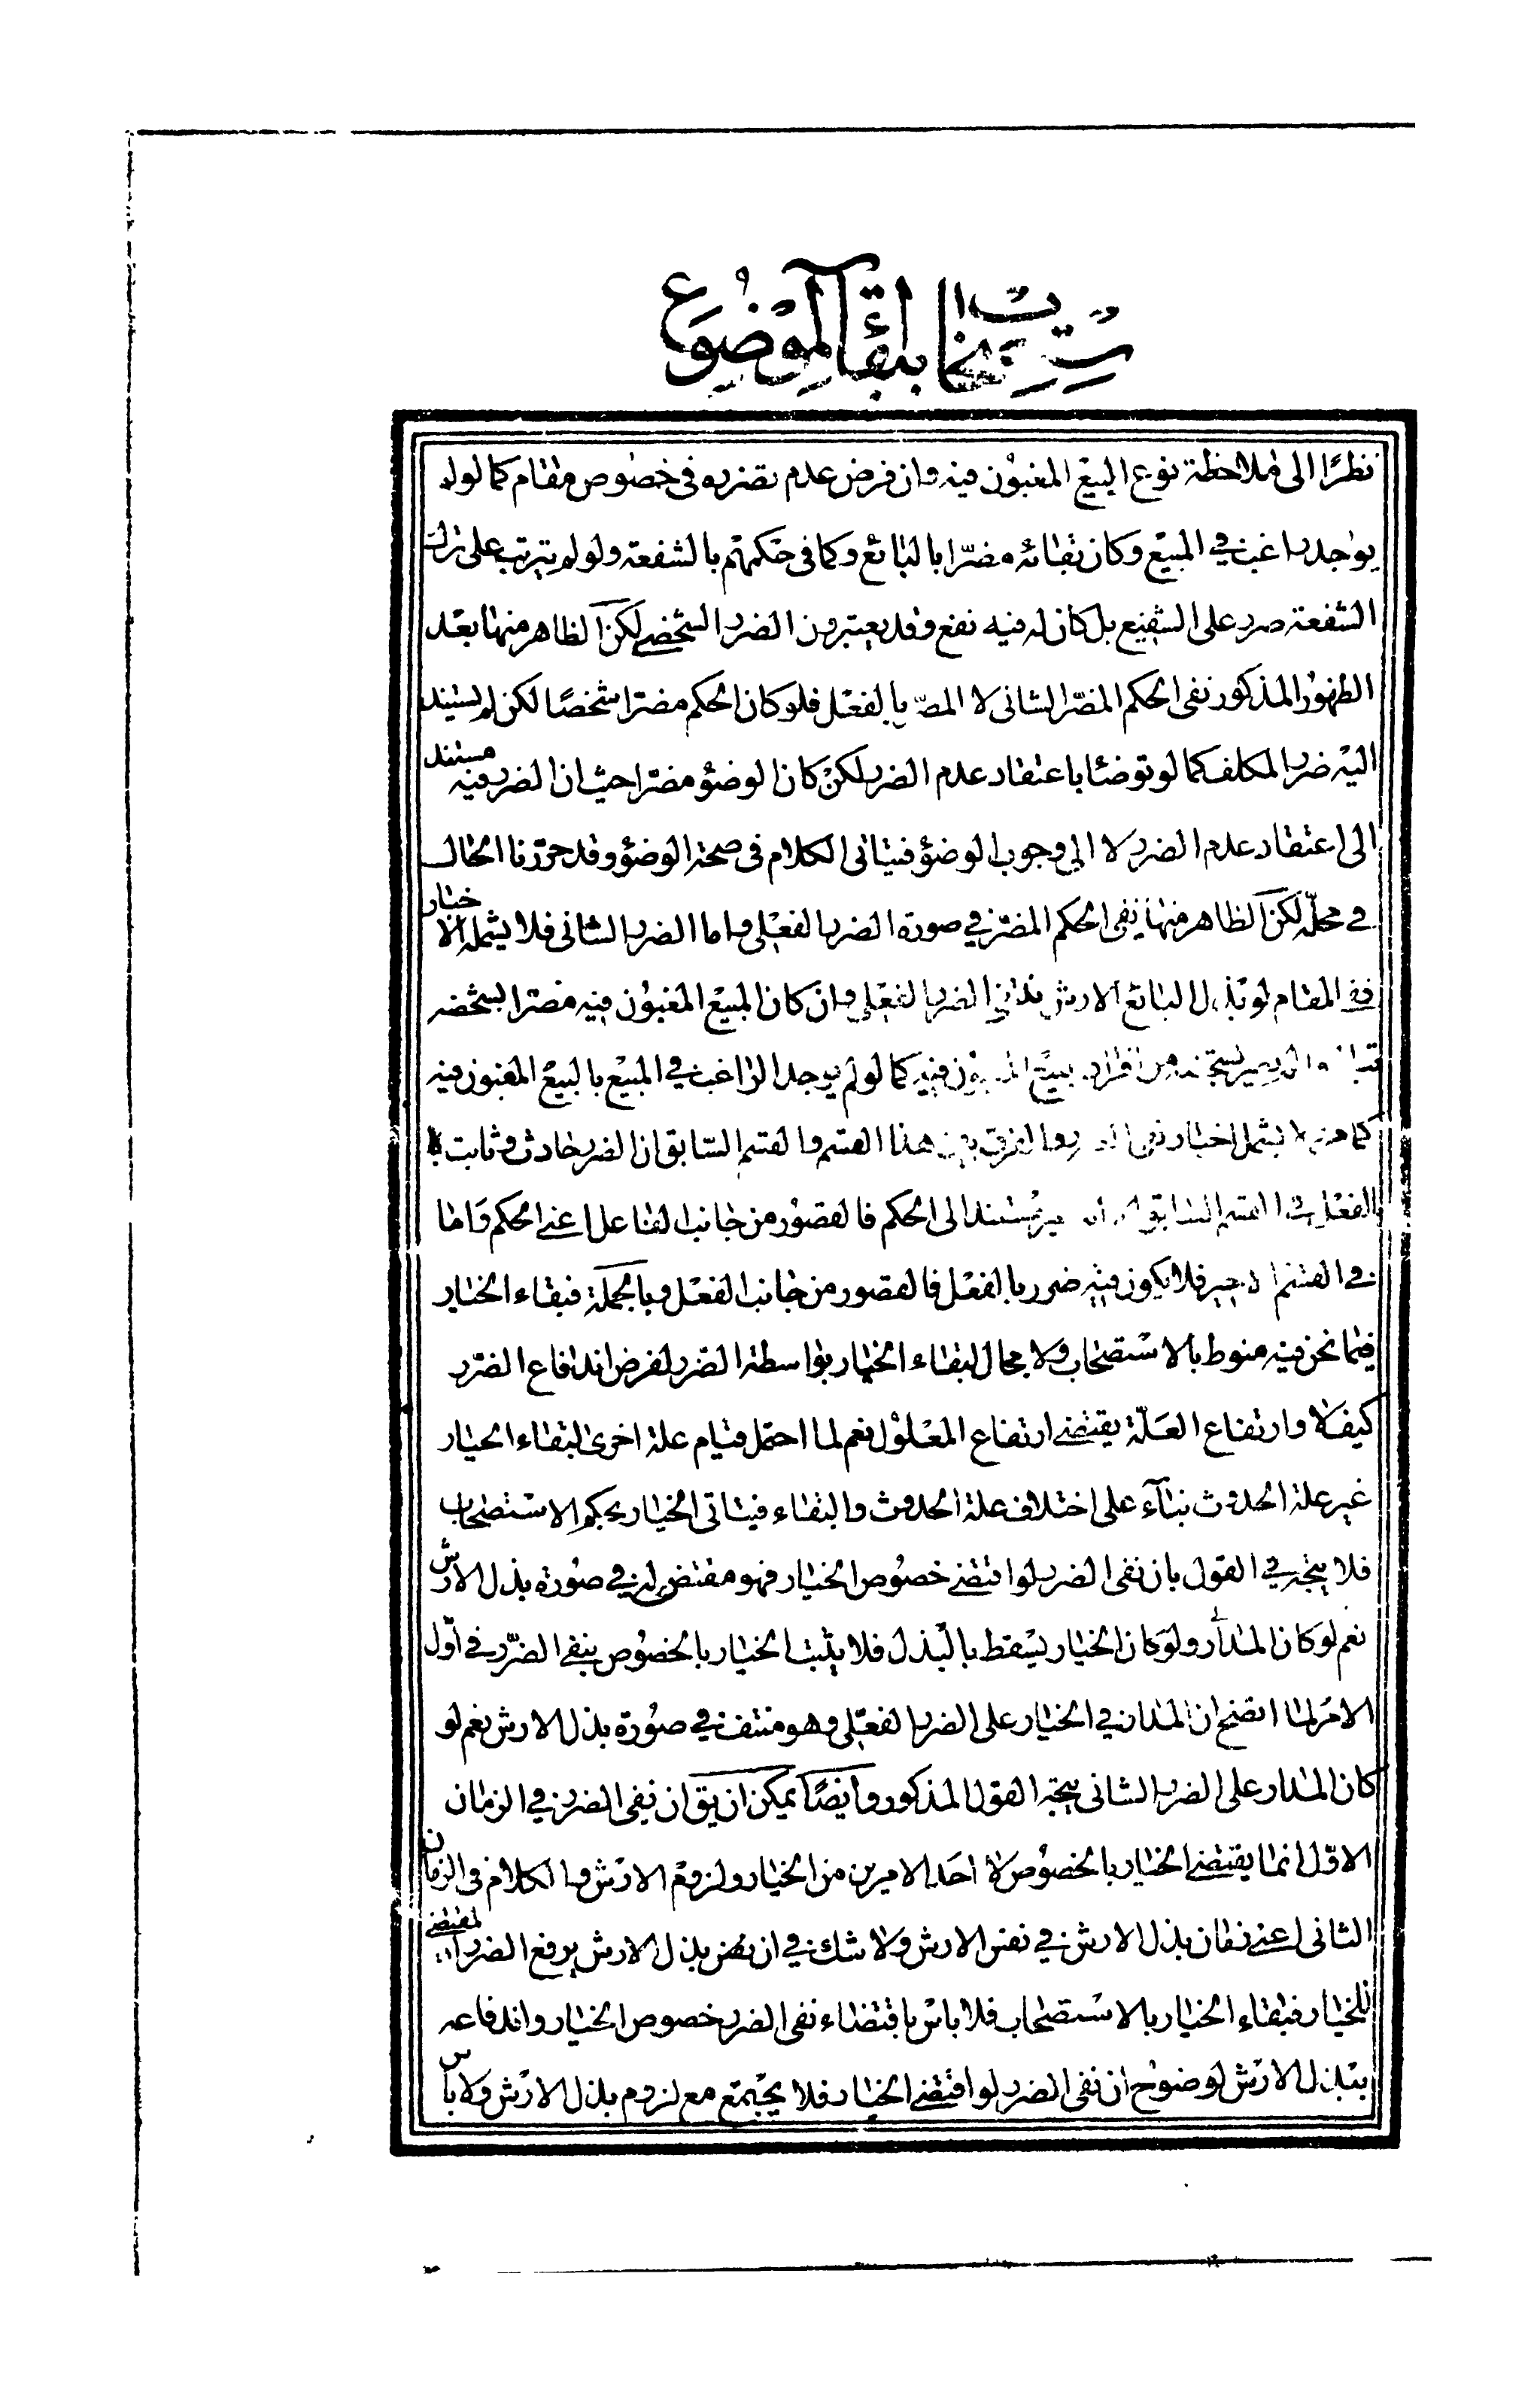 بقاء الموضوع
نظرًا الى ملاحظة نوع البيع المغبون فيه وان فرض عدم تضرره فى خصوص مقام كما لو لم
يوجد راغب في المبيع وكان بقائه مضرّا بالبائع وكما فى حكمهم بالشفعة ولو لم يترتب على ترك
الشفعة ضرر على الشفيع بل كان له فيه نفع وقد يعتبرون الضرر الشخصي لكن الظاهر منها بعد
الظهور المذكور نفى الحكم المضرّ الشانى لا المضر بالفعل فلو كان الحكم مضرّا شخصًا لكن لم يستند
اليه ضرر المكلف كما لو توضئا باعتقاد عدم الضرر لكن كان الوضوء مضرّا حيث ان الضرر فيه مستند
الى اعتقاد عدم الضرر لا الى وجوب الوضوء فيتاتى الكلام فى صحة الوضوء وقد حررنا الحال
في محلّه لكن الظاهر منها نفى الحكم المضرّ في صورة الضرر الفعلى واما الضرر الشانى فلا يشمله الاخبار
ففى المقام لو بذل البائع الارش الضرر الفعلي وان كان المبيع المغبون فيه مضرا بشخصه
من افراد فيه كما لو لم يوجد الراغب في المبيع بالبيع المغبون فيه
كما لا يشمل اخبار نفى الفرق بين هذا القسم والقسم السّابق ان الضرر حادث وثابت
بالفعل القسم السابق مستند الى الحكم فالقصور من جانب الفاعل اعنى الحكم وَاما
في القسم فلا يكون فيه ضرر بالفعل فالقصور من جانب الفعل وبالجملة فبقاء الخيار
فيما نحن فيه منوط بالاستصحاب ولا مجال لبقاء الخيار بواسطة الضرر لفرض اندفاع الضرر
كيف لا وارتفاع العلّة يقتضي ارتفاع المعلول نعم لما احتمل قيام علة اخرى لبقاء الخيار
غير علة الحدوث بنآء على اختلاف علة الحدوث والبقاء فيتاتى الخيار بحكم الاستصحاب
فلا يتجه في القول بان نفى الضرر لو اقتضى خصوص الخيار فهو مقتض له في صورة بذل الارش
نعم لو كان المدار ولو كان الخيار يسقط بالبذل فلا يثبت الخيار بالخصوص بنفي الضرّر في اوّل
الامر لما اتضح ان المدار في الخيار على الضرر الفعلى وهو منتف في صورة بذل الارش نعم لو
كان المدار على الضرر الشانى يتجه القول المذكور وايضًا يمكن ان يق ان نفى الضرر في الزمان
الاوّل انما يقتضي الخيار بالخصوص لا احد الامرين من الخيار ولزوم الارش والكلام فى الزمان
الثانى اعنى زمان بذل الارش في نفس الارش ولا شك في ان بذل الارش يرفع الضرر المقتضى
للخيار فبقاء الخيار بالاستصحاب فلا باس باقتضاء نفى الضرر خصوص الخيار واندفاعه
ببذل الارش لوضوح ان نفى الضرر لو اقتضى الخيار فلا يجتمع مع لزوم بذل الارش ولا باس